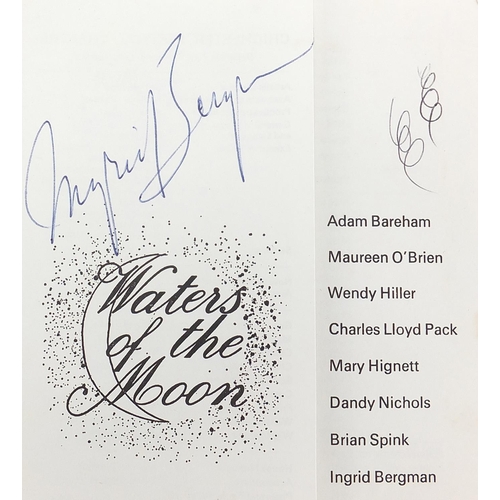 Ingrid Bergman
Waters
of the
Moon
Adam Bareham
Maureen O'Brien
Wendy Hiller
Charles Lloyd Pack
Mary Hignett
Dandy Nichols
Brian Spink
Ingrid Bergman